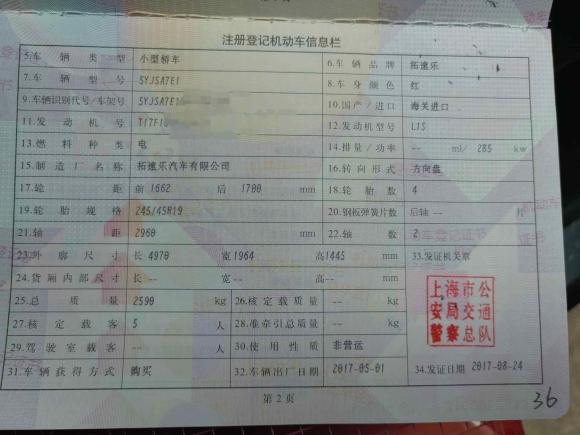 注册登记机动车信息栏
5.车辆类型 小型轿车 6.车辆品牌 拓速乐
7.车辆型号 5YJSA7E1 8.车身颜色 红
9.车辆识别代号/车架号 5YJSA7E1 10.国产/进口 海关进口
11.发动机号 T17F1 12.发动机型号 L1S
13.燃料种类 电 14.排量/功率 -- ml/ 285 kw
15.制造厂名称 拓速乐汽车有限公司 16.转向形式 方向盘
17.轮距 前 1662 后 1700 mm 18.轮胎数 4
19.轮胎规格 245/45R19 20.钢板弹簧片数 后轴 -- 片
21.轴距 2960 mm 22.轴数 2
23.外廓尺寸 长 4970 宽 1964 高 1445 mm 33.发证机关章
24.货厢内部尺寸 长 -- 宽 -- 高 -- mm
25.总质量 2590 kg 26.核定载质量 -- kg
上海市公
安局交通
警察总队
27.核定载客 5 人 28.准牵引总质量 -- kg
29.驾驶室载客 -- 人 30.使用性质 非营运
31.车辆获得方式 购买 32.车辆出厂日期 2017-05-01 34.发证日期 2017-08-24
第2页
36